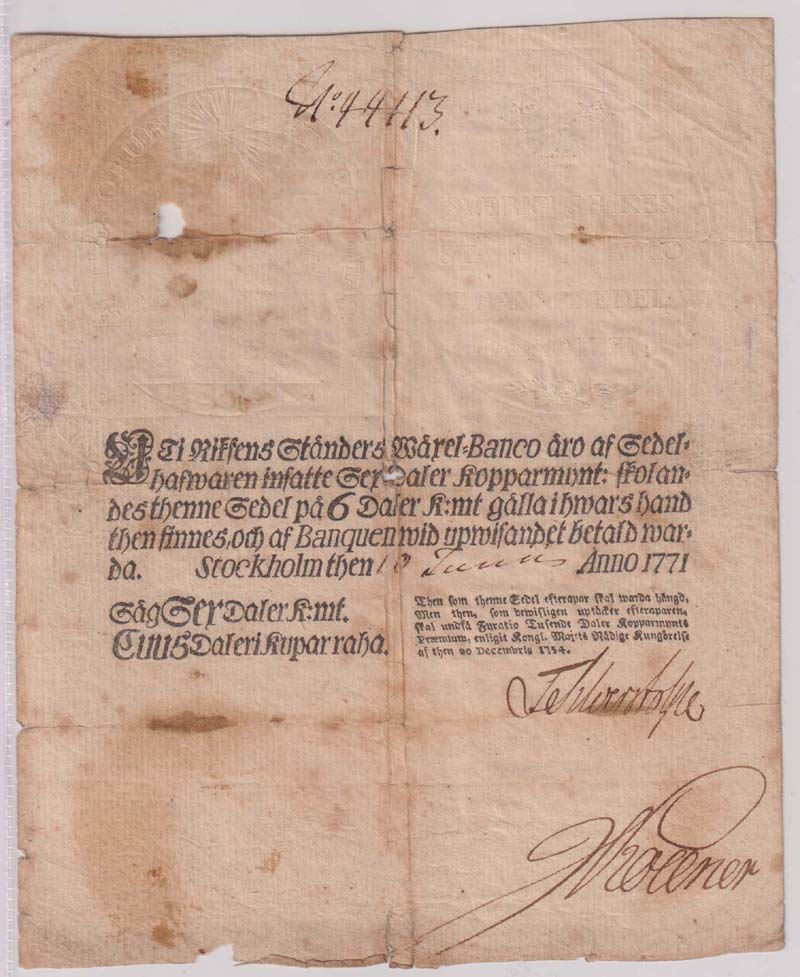 No 44113.
SVERIGES RIKES
STÄNDERS BANCO
TRANSP. SEDEL
UTi Riksens Ständers Wäxel-Banco äro af Sedel-
hafwaren insatte Sex Daler Kopparmynt: skolan-
des thenne Sedel på 6 Daler K:mt gälla i hwars hand
then finnes, och af Banquen wid upwisandet betald war-
da. Stockholm then 10 Junius Anno 1771
Säg Sex Daler K:mt.
Cuus Daleri Kupar raha.
Then som thenne Sedel efterapar skal warda hängd,
Men then, som bewisligen uptäcker efteraparen,
skal undfå Furatio Tusende Daler Kopparmynts
Præmium, enligit Kongl. Maj:ts Nådige Kungörelse
af then 20 Decembris 1754.